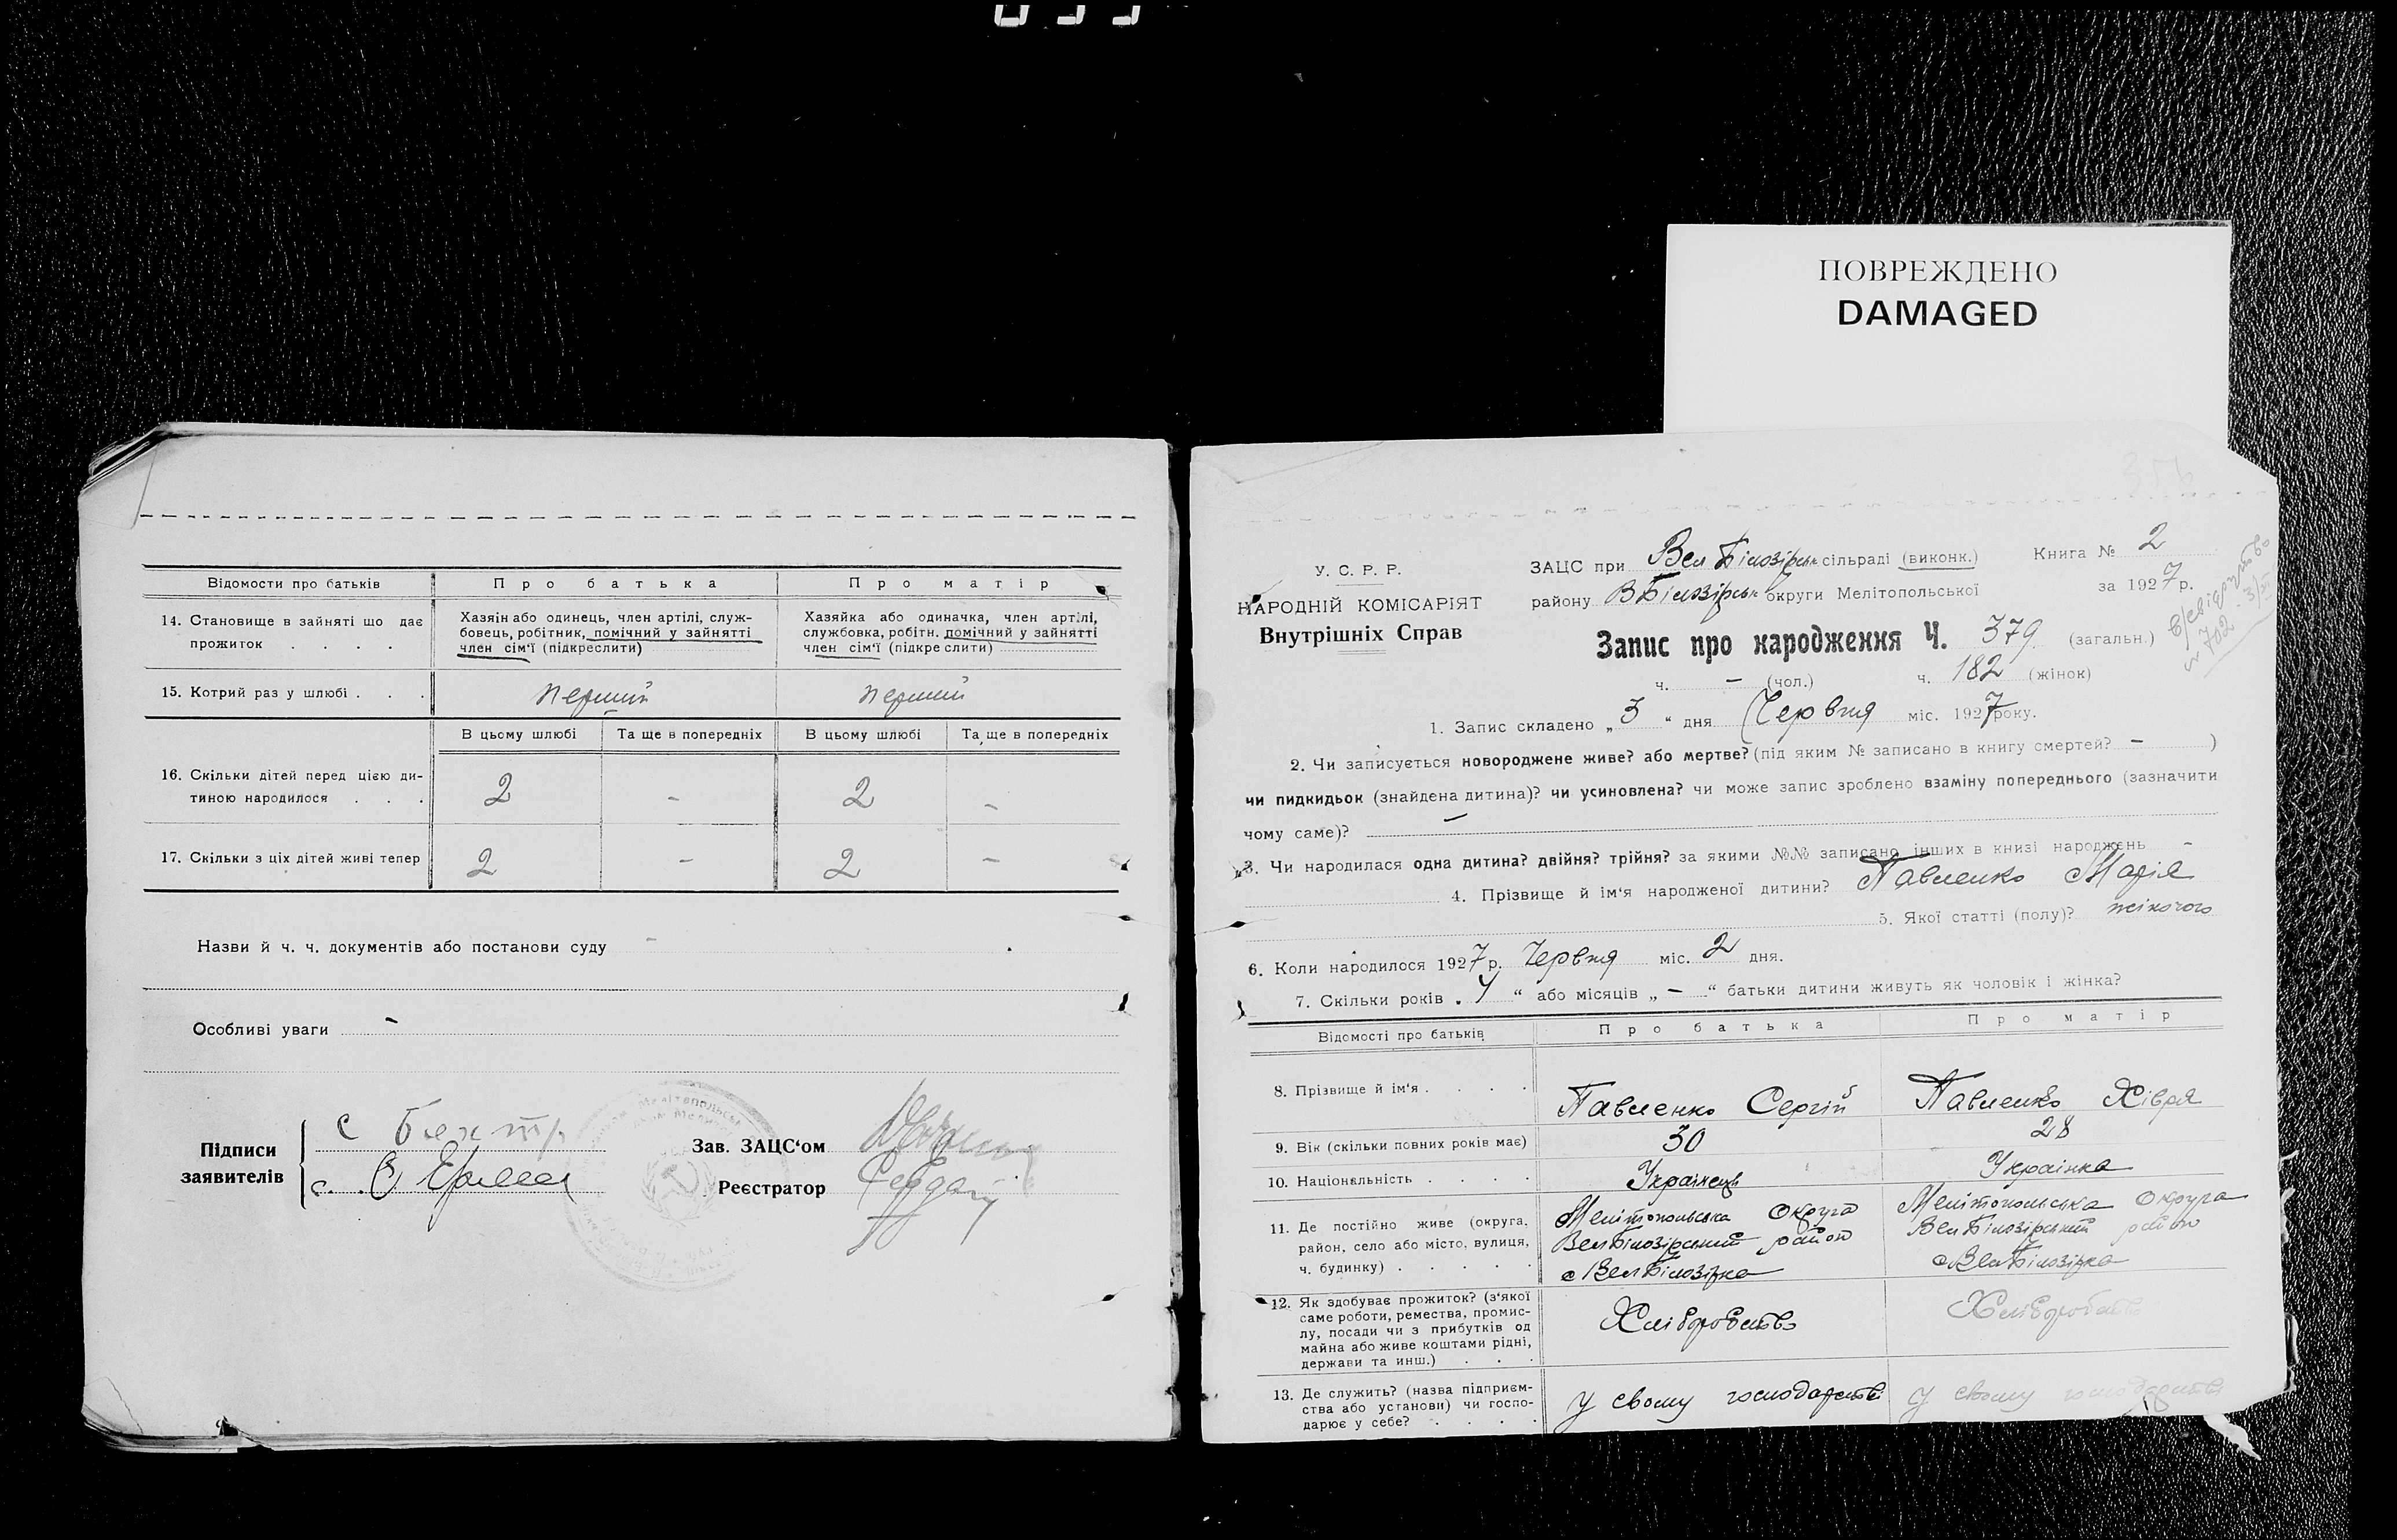 ПОВРЕЖДЕНО
DAMAGED
Відомости про батьків
Про батька
Про матір
14. Становище в зайняті що дає
прожиток . . . .
Хазяін або одинець, член артілі, служ-
бовець, робітник, помічний у зайнятті
член сім'ї (підкреслити)
Хазяйка або одиначка, член артілі,
службовка, робітн. помічний у зайнятті
член сім'ї (підкреслити)
15. Котрий раз у шлюбі . . .
перший
перший
В цьому шлюбі
Та ще в попередніх
В цьому шлюбі
Та ще в попередніх
16. Скільки дітей перед цією ди-
тиною народилося . . .
2
-
2
-
17. Скільки з ціх дітей живі тепер
2
-
2
-
Назви й ч. ч. документів або постанови суду -
Особливі уваги -
Підписи
заявителів
Зав. ЗАЦС'ом
Реєстратор
У. С. Р. Р.
НАРОДНІЙ КОМІСАРІЯТ
Внутрішніх Справ
ЗАЦС при Вел Білозірськ сільраді (виконк.)
Книга № 2
району ВБілозірськ округи Мелітопольської
за 1927 р.
Запис про народження Ч. 379 (загальн.)
ч. - (чол.) ч. 182 (жінок)
702
1. Запис складено „3“ дня Червня міс. 1927 року.
2. Чи записується новороджене живе? або мертве? (під яким № записано в книгу смертей? - )
чи пидкидьок (знайдена дитина)? чи усиновлена? чи може запис зроблено взаміну попереднього (зазначити
чому саме)? -
3. Чи народилася одна дитина? двійня? трійня? за якими №№ записано інших в книзі народжень -
4. Прізвище й ім'я народженої дитини? Павленко Марія
5. Якої статті (полу)? жіночого
6. Коли народилося 1927 р. Червня міс. 2 дня.
7. Скільки років „ 4 “ або місяців „ - “ батьки дитини живуть як чоловік і жінка?
Відомості про батьків
Про батька
Про матір
8. Прізвище й ім'я . . . .
Павленко Сергій
Павленко Хівря
9. Вік (скільки повних років має)
30
28
10. Національність . . . .
Українець
Українка
11. Де постійно живе (округа,
район, село або місто, вулиця,
ч. будинку) . . . . .
Мелітопольська Округа
ВелБілозірський район
с ВелБілозірка
Мелітопольська Округа
ВелБілозірський район
с ВелБілозірка
12. Як здобуває прожиток? (з'якої
саме роботи, ремества, промис-
лу, посади чи з прибутків од
майна або живе коштами рідні,
держави та инш.) . . .
Хліборобство
Хліборобство
13. Де служить? (назва підприєм-
ства або установи) чи госпо-
дарює у себе? . . . .
у свому господарстві
у свому господарстві